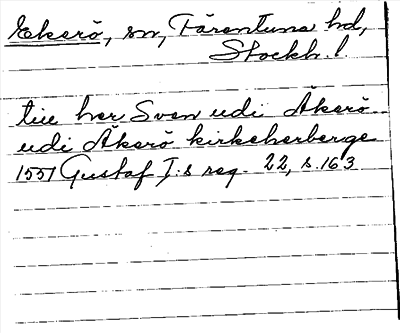 Ekerö, sn, Färentuna hd,
Stockh. l.
till her Sven udi Åkerö..
udi Åkerö kirkeherberge
1551 Gustaf I:s reg. 22, s. 163